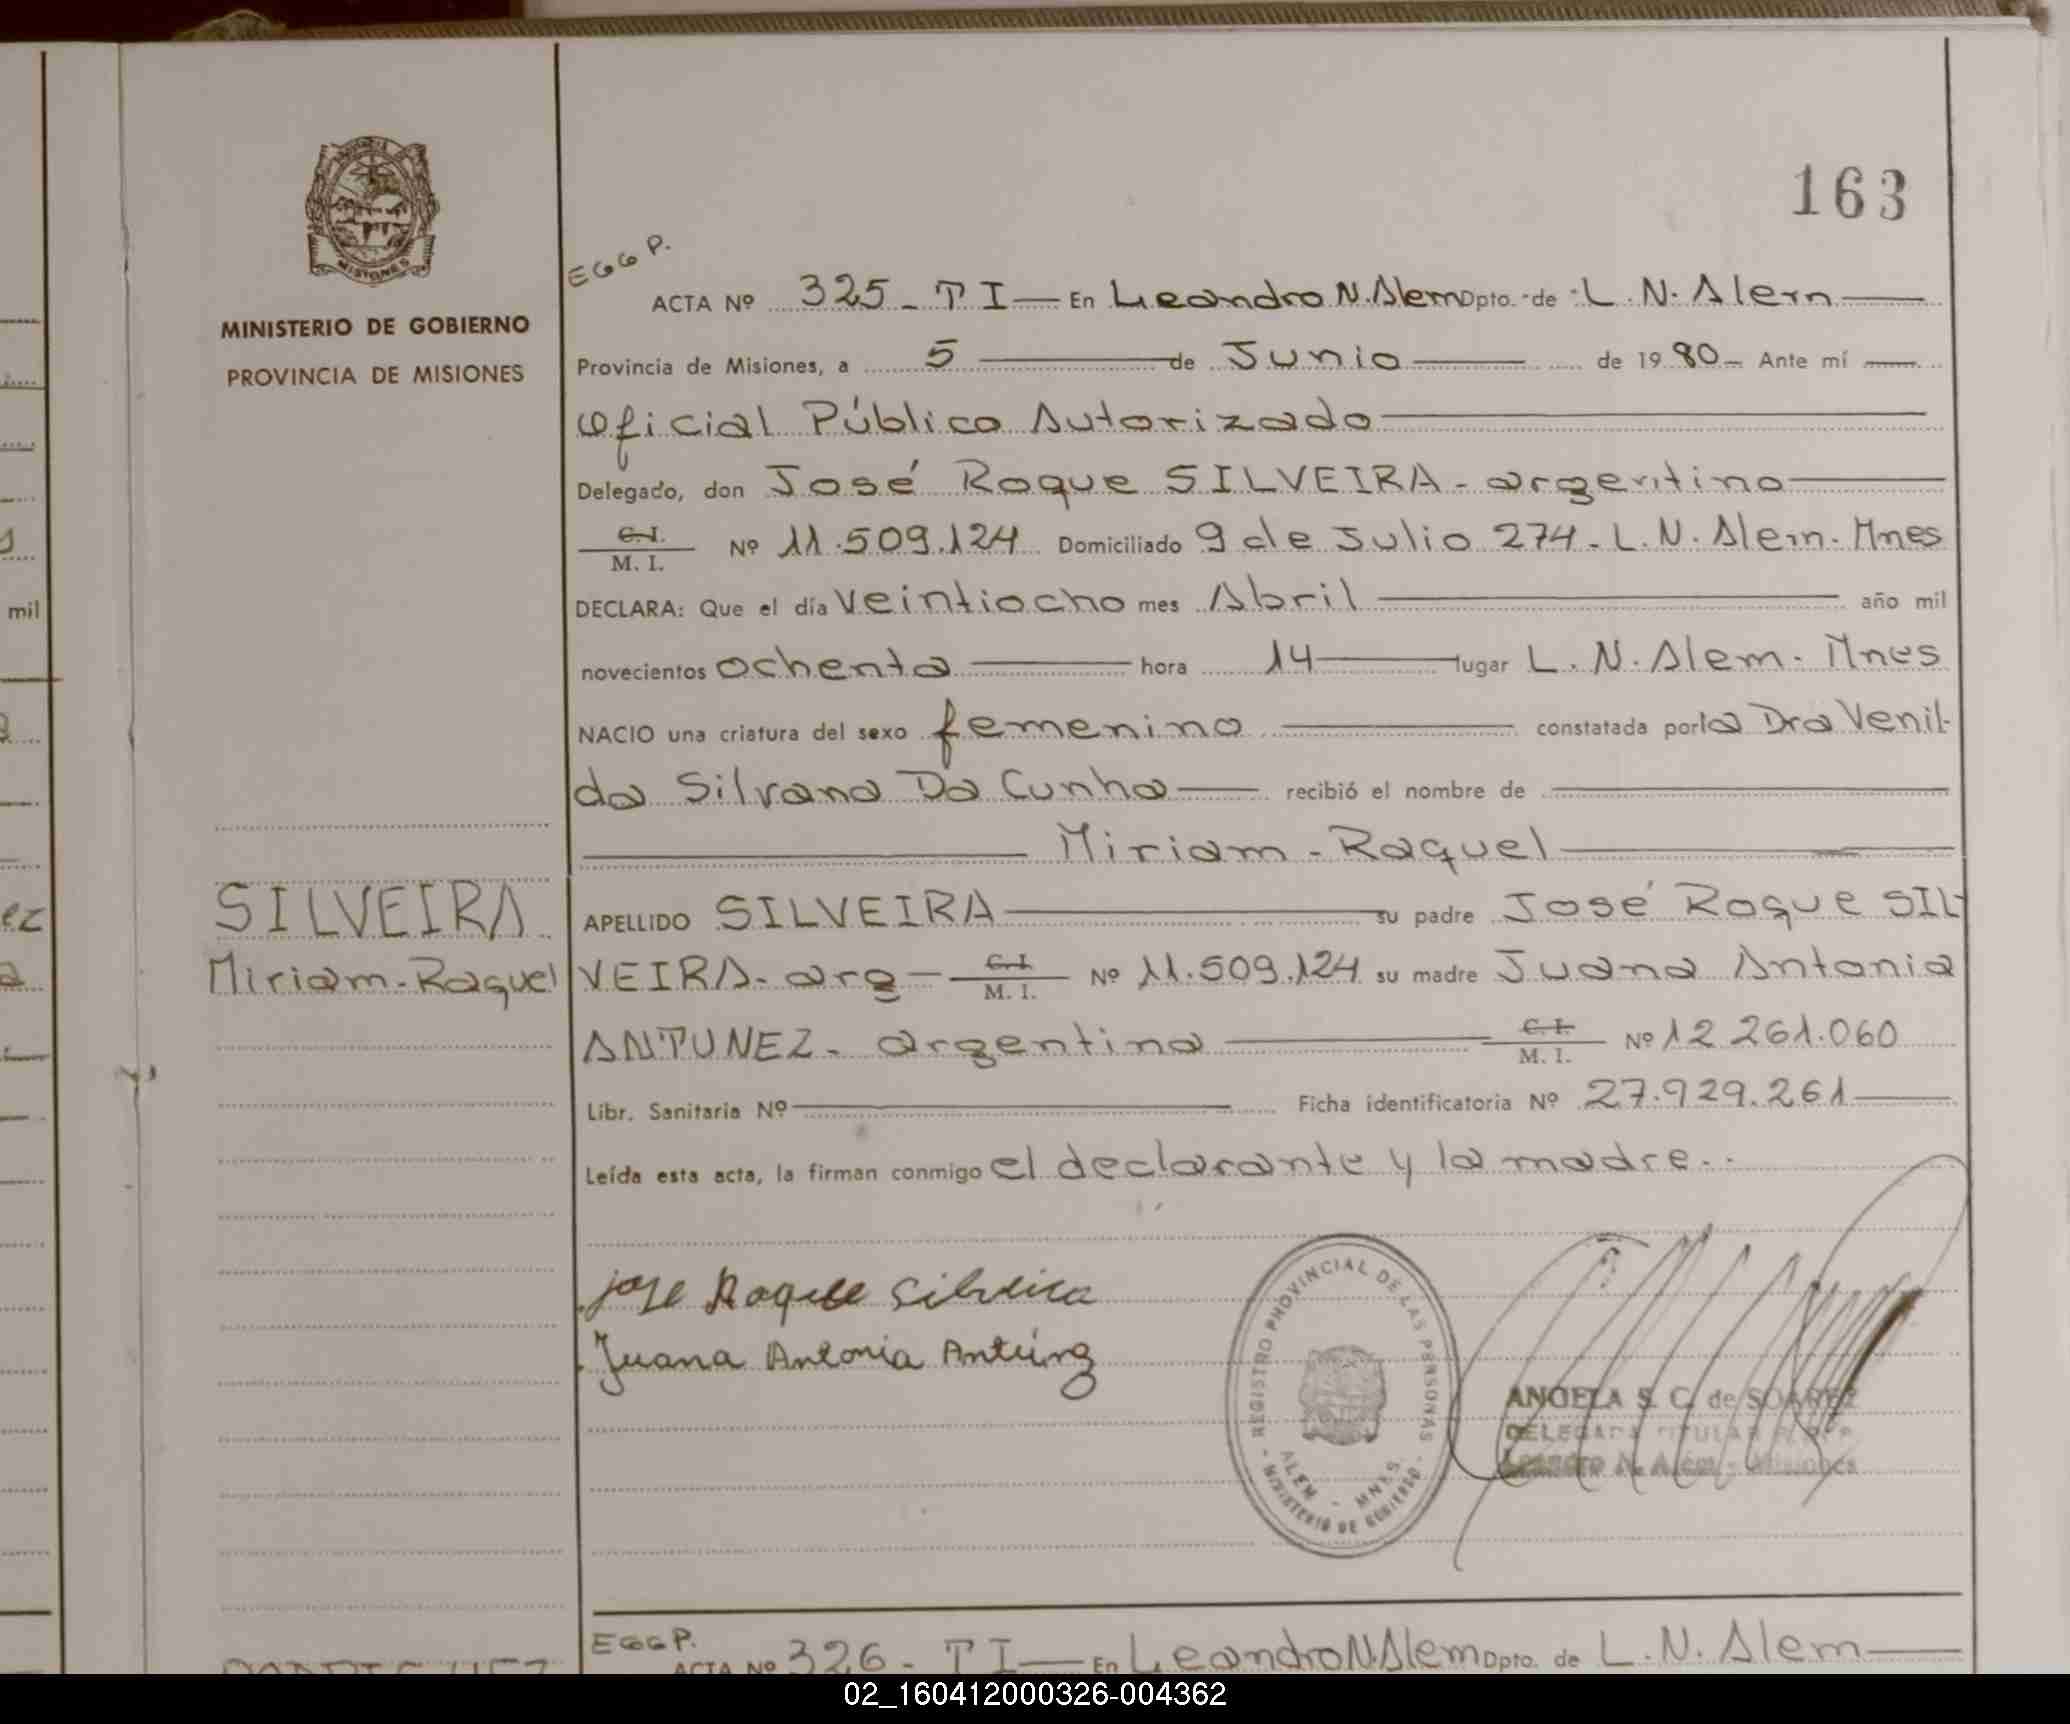 163
MINISTERIO DE GOBIERNO
PROVINCIA DE MISIONES
EGGP.
ACTA Nº 325 - TI — En Leandro N. Alem Dpto. de L. N. Alem —
Provincia de Misiones, a 5 — de Junio — de 1980 - Ante mí —
Oficial Público Autorizado —
Delegado, don José Roque SILVEIRA - argentino —
C.I.
M. I. Nº 11.509.124 Domiciliado 9 de Julio 274 - L. N. Alem - Mnes
DECLARA: Que el día veintiocho mes Abril — año mil
novecientos ochenta — hora 14 — lugar L. N. Alem - Mnes
NACIO una criatura del sexo femenino — constatada por la Dra Venil-
da Silvana Da Cunha — recibió el nombre de —
— Miriam - Raquel —
SILVEIRA
Miriam - Raquel
APELLIDO SILVEIRA — su padre José Roque SIL-
VEIRA - arg - C.I.
M. I. Nº 11.509.124 su madre Juana Antonia
ANTUNEZ - argentina — C.I.
M. I. Nº 12 261.060
Libr. Sanitaria Nº — Ficha identificatoria Nº 27.929.261 —
Leída esta acta, la firman conmigo el declarante y la madre. -
jose Roque Silveira
Juana Antonia Antúnez
REGISTRO PROVINCIAL DE LAS PERSONAS
ALEM - MNES.
- MINISTERIO DE GOBIERNO -
ANGELA S. C. de SOAREZ
DELEGADA TITULAR
Leandro N. Alem - Misiones
EGGP.
ACTA Nº 326 - TI — En Leandro N. Alem Dpto. de L. N. Alem —
mil
ez
02_160412000326-004362